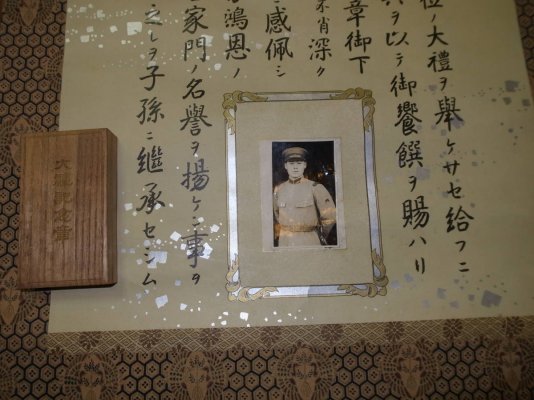 位ノ大禮ヲ舉ケサセ給フニ
ヲ以テ御饗饌ヲ賜ハリ
章御下
不肖深ク
ニ感佩シ
鴻恩ノ
家門ノ名譽ヲ揚ケン事ヲ
之レヲ子孫ニ繼承セシム
大禮記念章